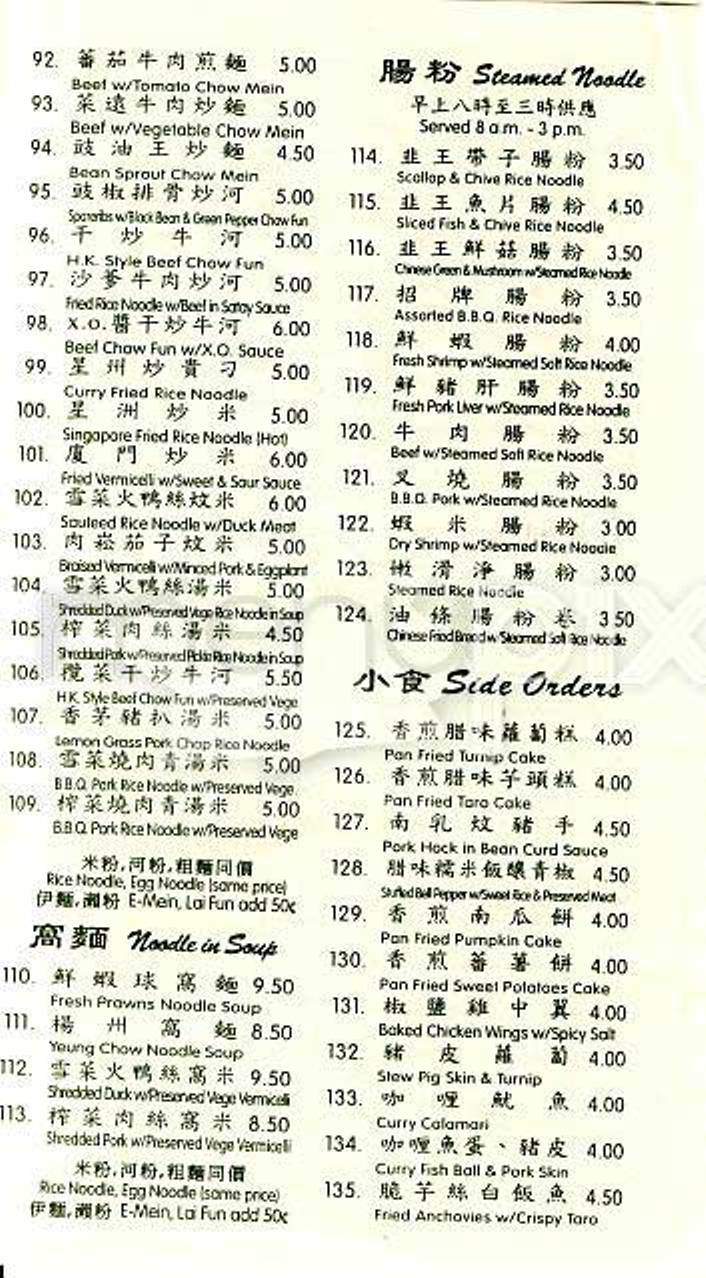 92. 蕃茄牛肉煎麵 5.00
Beef w/Tomato Chow Mein
93. 菜遠牛肉炒麵 5.00
Beef w/Vegetable Chow Mein
94. 豉油王炒麵 4.50
Bean Sprout Chow Mein
95. 豉椒排骨炒河 5.00
Spareribs w/Black Bean & Green Pepper Chow Fun
96. 干炒牛河 5.00
H.K. Style Beef Chow Fun
97. 沙爹牛肉炒河 5.00
Fried Rice Noodle w/Beef in Satay Sauce
98. X.O.醬干炒牛河 6.00
Beef Chow Fun w/X.O. Sauce
99. 星州炒貴刁 5.00
Curry Fried Rice Noodle
100. 星洲炒米 5.00
Singapore Fried Rice Noodle (Hot)
101. 廈門炒米 6.00
Fried Vermicelli w/Sweet & Sour Sauce
102. 雪菜火鴨絲炆米 6.00
Sauteed Rice Noodle w/Duck Meat
103. 肉崧茄子炆米 5.00
Braised Vermicelli w/Minced Pork & Eggplant
104. 雪菜火鴨絲湯米 5.00
Shredded Duck w/Preserved Vege Rice Noodle in Soup
105. 榨菜肉絲湯米 4.50
Shredded Pork w/Preserved Pickle Rice Noodle in Soup
106. 欖菜干炒牛河 5.50
H.K. Style Beef Chow Fun w/Preserved Vege
107. 香茅豬扒湯米 5.00
Lemon Grass Pork Chop Rice Noodle
108. 雪菜燒肉青湯米 5.00
B.B.Q. Pork Rice Noodle w/Preserved Vege
109. 榨菜燒肉青湯米 5.00
B.B.Q. Pork Rice Noodle w/Preserved Vege
米粉,河粉,粗麵同價
Rice Noodle, Egg Noodle (same price)
伊麵,瀨粉 E-Mein, Lai Fun add 50¢
窩麵 Noodle in Soup
110. 鮮蝦球窩麵 9.50
Fresh Prawns Noodle Soup
111. 楊州窩麵 8.50
Yeung Chow Noodle Soup
112. 雪菜火鴨絲窩米 9.50
Shredded Duck w/Preserved Vege Vermicelli
113. 榨菜肉絲窩米 8.50
Shredded Pork w/Preserved Vege Vermicelli
米粉,河粉,粗麵同價
Rice Noodle, Egg Noodle (same price)
伊麵,瀨粉 E-Mein, Lai Fun add 50¢
腸粉 Steamed Noodle
早上八時至三時供應
Served 8 a.m. - 3 p.m.
114. 韭王帶子腸粉 3.50
Scallop & Chive Rice Noodle
115. 韭王魚片腸粉 4.50
Sliced Fish & Chive Rice Noodle
116. 韭王鮮菇腸粉 3.50
Chinese Green & Mushroom w/Steamed Rice Noodle
117. 招牌腸粉 3.50
Assorted B.B.Q. Rice Noodle
118. 鮮蝦腸粉 4.00
Fresh Shrimp w/Steamed Soft Rice Noodle
119. 鮮豬肝腸粉 3.50
Fresh Pork Liver w/Steamed Rice Noodle
120. 牛肉腸粉 3.50
Beef w/Steamed Soft Rice Noodle
121. 叉燒腸粉 3.50
B.B.Q. Pork w/Steamed Rice Noodle
122. 蝦米腸粉 3.00
Dry Shrimp w/Steamed Rice Noodle
123. 嫩滑淨腸粉 3.00
Steamed Rice Noodle
124. 油條腸粉卷 3.50
Chinese Fried Bread w/Steamed Soft Rice Noodle
小食 Side Orders
125. 香煎腊味蘿蔔糕 4.00
Pan Fried Turnip Cake
126. 香煎腊味芋頭糕 4.00
Pan Fried Taro Cake
127. 南乳炆豬手 4.50
Pork Hock in Bean Curd Sauce
128. 腊味糯米飯釀青椒 4.50
Stuffed Bell Pepper w/Sweet Rice & Preserved Meat
129. 香煎南瓜餅 4.00
Pan Fried Pumpkin Cake
130. 香煎蕃薯餅 4.00
Pan Fried Sweet Potatoes Cake
131. 椒鹽雞中翼 4.00
Baked Chicken Wings w/Spicy Salt
132. 豬皮蘿蔔 4.00
Stew Pig Skin & Turnip
133. 咖喱魷魚 4.00
Curry Calamari
134. 咖喱魚蛋、豬皮 4.00
Curry Fish Ball & Pork Skin
135. 脆芋絲白飯魚 4.50
Fried Anchovies w/Crispy Taro